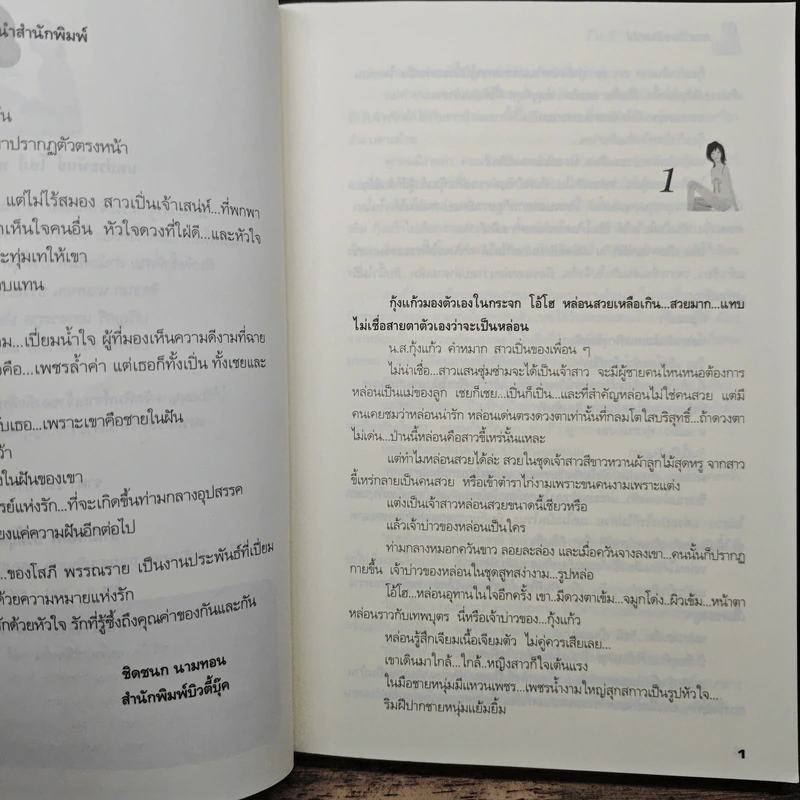 นำสำนักพิมพ์
าปรากฏตัวตรงหน้า
แต่ไม่ไร้สมอง สาวเปิ่นเจ้าเสน่ห์...ที่พกพา
เห็นใจคนอื่น หัวใจดวงที่ใฝ่ดี...และหัวใจ
ะทุ่มเทให้เขา
อบแทน
ม...เปี่ยมน้ำใจ ผู้ที่มองเห็นความดีงามที่ฉาย
คือ...เพชรล้ำค่า แต่เธอก็ทั้งเปิ่น ทั้งเชยและ
ับเธอ...เพราะเขาคือชายในฝัน
ในฝันของเขา
รย์แห่งรัก...ที่จะเกิดขึ้นท่ามกลางอุปสรรค
ยงแค่ความฝันอีกต่อไป
...ของโสภี พรรณราย เป็นงานประพันธ์ที่เปี่ยม
ด้วยความหมายแห่งรัก
รักด้วยหัวใจ รักที่รู้ซึ้งถึงคุณค่าของกันและกัน
ชิดชนก นามทอน
สำนักพิมพ์บิวตี้บุ๊ค
1
กุ้งแก้วมองตัวเองในกระจก โอ้โฮ หล่อนสวยเหลือเกิน...สวยมาก...แทบ
ไม่เชื่อสายตาตัวเองว่าจะเป็นหล่อน
น.ส.กุ้งแก้ว คำหมาก สาวเปิ่นของเพื่อน ๆ
ไม่น่าเชื่อ...สาวแสนซุ่มซ่ามจะได้เป็นเจ้าสาว จะมีผู้ชายคนไหนหนอต้องการ
หล่อนเป็นแม่ของลูก เชยก็เชย...เปิ่นก็เปิ่น...และที่สำคัญหล่อนไม่ใช่คนสวย แต่มี
คนเคยชมว่าหล่อนน่ารัก หล่อนเด่นตรงดวงตาเท่านั้นที่กลมโตใสบริสุทธิ์...ถ้าดวงตา
ไม่เด่น...ป่านนี้หล่อนคือสาวขี้เหร่นั้นแหละ
แต่ทำไมหล่อนสวยได้ล่ะ สวยในชุดเจ้าสาวสีขาวหวานผ้าลูกไม้สุดหรู จากสาว
ขี้เหร่กลายเป็นคนสวย หรือเข้าตำราไก่งามเพราะขนคนงามเพราะแต่ง
แต่งเป็นเจ้าสาวหล่อนสวยขนาดนี้เชียวหรือ
แล้วเจ้าบ่าวของหล่อนเป็นใคร
ท่ามกลางหมอกควันขาว ลอยละล่อง และเมื่อควันจางลงเขา...คนนั้นก็ปรากฏ
กายขึ้น เจ้าบ่าวของหล่อนในชุดสูทสง่างาม...รูปหล่อ
โอ้โฮ...หล่อนอุทานในใจอีกครั้ง เขา...มีดวงตาเข้ม...จมูกโด่ง..ผิวเข้ม...หน้าตา
หล่อนราวกับเทพบุตร นี่หรือเจ้าบ่าวของ...กุ้งแก้ว
หล่อนรู้สึกเจียมเนื้อเจียมตัว ไม่คู่ควรเสียเลย...
เขาเดินมาใกล้...ใกล้..หญิงสาวก็ใจเต้นแรง
ในมือชายหนุ่มมีแหวนเพชร...เพชรน้ำงามใหญ่สุกสกาวเป็นรูปหัวใจ...
ริมฝีปากชายหนุ่มแย้มยิ้ม
1